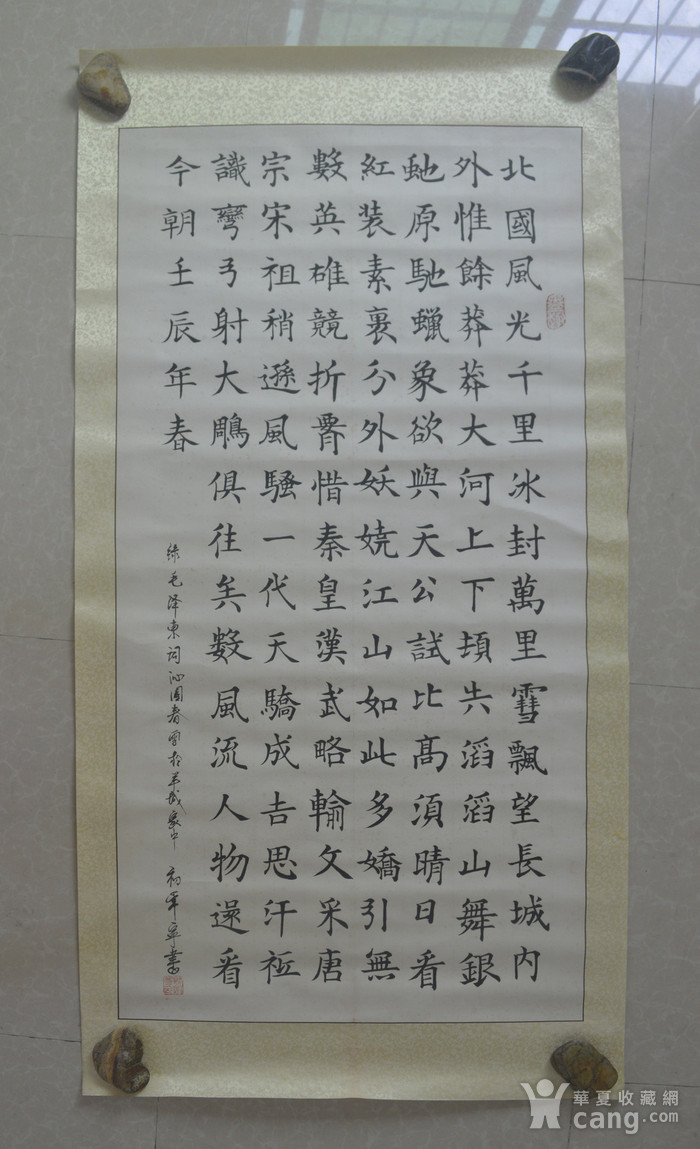 北國風光千里冰封萬里雪飄望長城內
外惟餘莽莽大河上下頓失滔滔山舞銀
虵原馳蠟象欲與天公試比高須晴日看
紅装素裹分外妖娆江山如此多嬌引無
數英雄競折腰惜秦皇漢武略輸文采唐
宗宋祖稍遜風騷一代天驕成吉思汗衹
識彎弓射大鵰俱往矣數風流人物還看
今朝壬辰年春
绿毛泽東词沁园春雪於羊城家中
書
華夏收藏網
cang.com